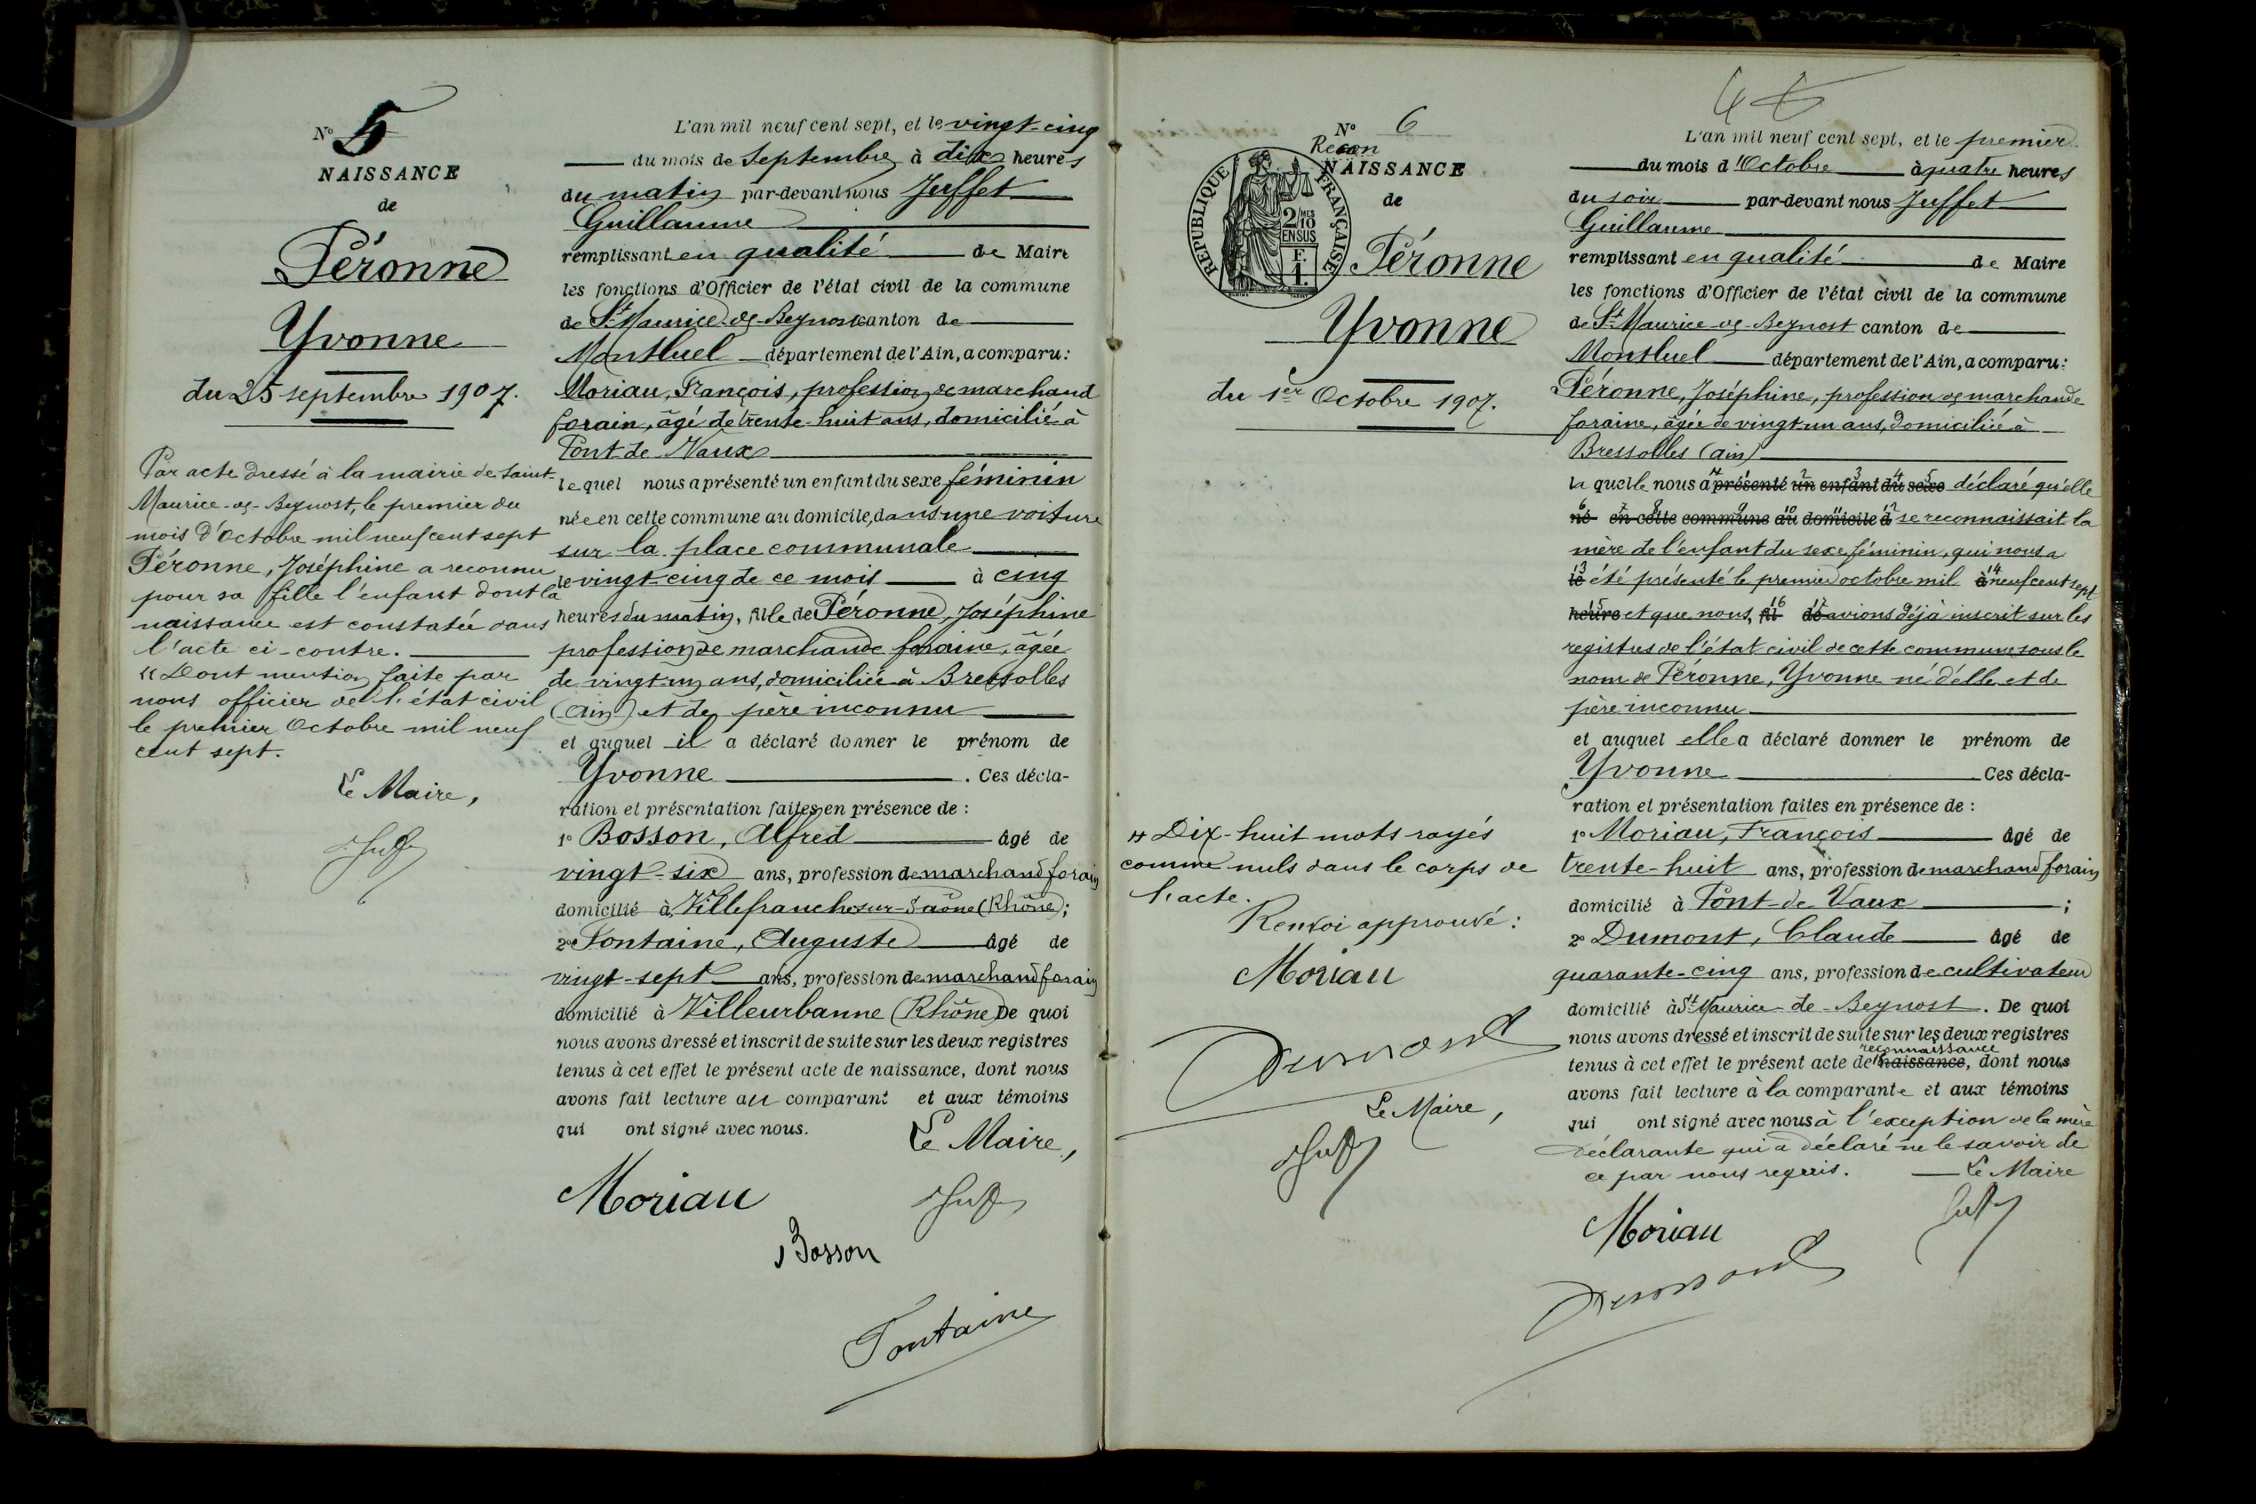 N° 5
NAISSANCE
de
Péronne
Yvonne
du 25 septembre 1907.
Par acte dressé à la mairie de Saint-
Maurice-de-Beynost, le premier du
mois d'Octobre mil neuf cent sept
Péronne, Joséphine a reconnu
pour sa fille l'enfant dont la
naissance est constatée dans
l'acte ci-contre.
"Dont mention faite par
nous officier de l'état civil
le premier Octobre mil neuf
cent sept.
Le Maire,
L'an mil neuf cent sept, et le vingt-cinq
du mois de Septembre à dix heures
du matin par-devant nous Juffet
Guillaume
remplissant en qualité de Maire
les fonctions d'Officier de l'état civil de la commune
de St Maurice-de-Beynost canton de
Montluel département de l'Ain, a comparu:
Moriau, François, profession de marchand
forain, âgé de trente-huit ans, domicilié à
Pont-de-Vaux
lequel nous a présenté un enfant du sexe féminin
née en cette commune au domicile, dans une voiture
sur la place communale
le vingt-cinq de ce mois à cinq
heures du matin, fille de Péronne, Joséphine
profession de marchande foraine, âgée
de vingt-un ans, domiciliée à Bressolles
(Ain) et de père inconnu
et auquel il a déclaré donner le prénom de
Yvonne . Ces décla-
ration et présentation faites en présence de :
1° Bosson, Alfred âgé de
vingt-six ans, profession de marchand forain
domicilié à Villefranche-sur-Saône (Rhône);
2° Fontaine, Auguste âgé de
vingt-sept ans, profession de marchand forain
domicilié à Villeurbanne (Rhône) De quoi
nous avons dressé et inscrit de suite sur les deux registres
tenus à cet effet le présent acte de naissance, dont nous
avons fait lecture au comparant et aux témoins
qui ont signé avec nous.
Le Maire,
Moriau
Bosson
Fontaine
N° 6
Recon
NAISSANCE
de
RÉPUBLIQUE FRANÇAISE
2/10 MES
EN SUS
F.
1.
Péronne
Yvonne
du 1er Octobre 1907.
# Dix-huit mots rayés
comme nuls dans le corps de
l'acte.
Renvoi approuvé :
Moriau
Dumont
Le Maire,
L'an mil neuf cent sept, et le premier
du mois d'Octobre à quatre heures
du soir par-devant nous Juffet
Guillaume
remplissant en qualité de Maire
les fonctions d'Officier de l'état civil de la commune
de St Maurice-de-Beynost canton de
Montluel département de l'Ain, a comparu:
Péronne, Joséphine, profession de marchande
foraine, âgée de vingt-un ans, domiciliée à
Bressolles (Ain)
laquelle nous a présenté un enfant du sexe déclaré qu'elle
né en cette commune au domicile à se reconnaissait la
mère de l'enfant du sexe féminin, qui nous a
le été présenté le premier octobre mil à neuf cent sept
heure et que nous, fil de avions déjà inscrit sur les
registres de l'état civil de cette commune sous le
nom de Péronne, Yvonne né d'elle et de
père inconnu
et auquel elle a déclaré donner le prénom de
Yvonne Ces décla-
ration et présentation faites en présence de :
1° Moriau, François âgé de
trente-huit ans, profession de marchand forain
domicilié à Pont-de-Vaux ;
2° Dumont, Claude âgé de
quarante-cinq ans, profession de cultivateur
domicilié à St Maurice-de-Beynost. De quoi
nous avons dressé et inscrit de suite sur les deux registres
reconnaissance
tenus à cet effet le présent acte de naissance, dont nous
avons fait lecture à la comparante et aux témoins
qui ont signé avec nous à l'exception de la mère
déclarante qui a déclaré ne le savoir de
ce par nous requis. Le Maire
Moriau
Dumont